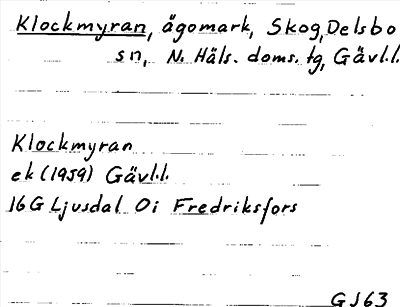 Klockmyran, ägomark, Skog, Delsbo
sn, N. Häls. doms. tg, Gävl.l.
Klockmyran
ek (1959) Gävl.l.
16G Ljusdal 0i Fredriksfors
GJ63